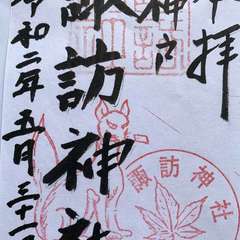 奉拝
神戸
諏訪神社
令和二年五月三十一
諏訪神社